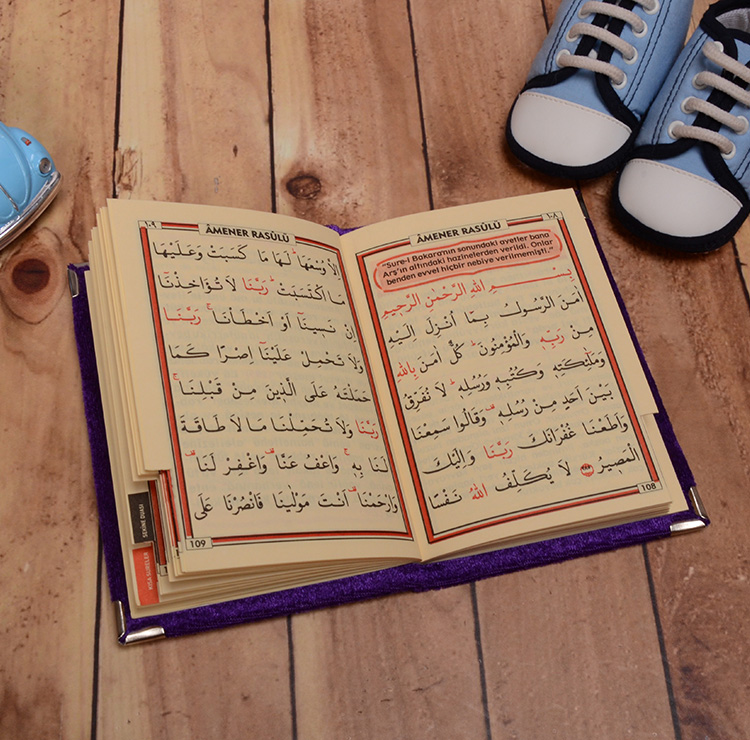 ١٠٨
ÂMENER RASÛLÜ
"Sure-i Bakara'nın sonundaki ayetler bana
Arş'ın altındaki hazinelerden verildi. Onlar
benden evvel hiçbir nebiye verilmemişti."
بِسْــمِ اللهِ الرَّحْمٰنِ الرَّحِيمِ
اٰمَنَ الرَّسُولُ بِمَٓا اُنْزِلَ اِلَيْهِ
مِنْ رَبِّهٖ وَالْمُؤْمِنُونَ ۜ كُلٌّ اٰمَنَ بِاللهِ
وَمَلٰٓئِكَتِهٖ وَكُتُبِهٖ وَرُسُلِهٖ ۜ لَا نُفَرِّقُ
بَيْنَ اَحَدٍ مِنْ رُسُلِهٖ ۠ وَقَالُوا سَمِعْنَا
وَاَطَعْنَا غُفْرَانَكَ رَبَّنَا وَاِلَيْكَ
الْمَصِيرُ ﴿٢٨٥﴾ لَا يُكَلِّفُ اللهُ نَفْسًا
108
١٠٩
ÂMENER RASÛLÜ
اِلَّا وُسْعَهَا ۜ لَهَا مَا كَسَبَتْ وَعَلَيْهَا
مَا اكْتَسَبَتْ ۜ رَبَّنَا لَا تُؤَاخِذْنَٓا
اِنْ نَسِينَٓا اَوْ اَخْطَأْنَا ۚ رَبَّنَا
وَلَا تَحْمِلْ عَلَيْنَٓا اِصْرًا كَمَا
حَمَلْتَهُ عَلَى الَّذِينَ مِنْ قَبْلِنَا ۚ
رَبَّنَا وَلَا تُحَمِّلْنَا مَا لَا طَاقَةَ
لَنَا بِهٖ ۚ وَاعْفُ عَنَّا ۠ وَاغْفِرْ لَنَا ۠
وَارْحَمْنَا ۠ اَنْتَ مَوْلٰينَا فَانْصُرْنَا عَلَى
109
SEKİNE DUASI
KISA SURELER